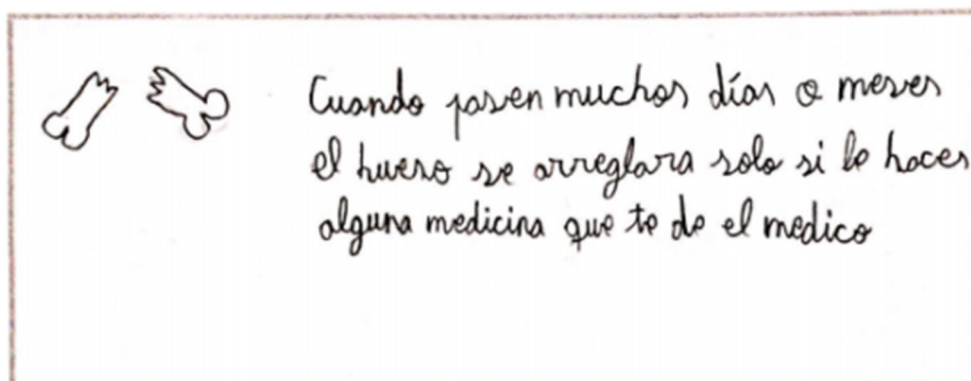 Cuando pasen muchos días o meses
el hueso se arreglara solo si le haces
alguna medicina que te de el medico